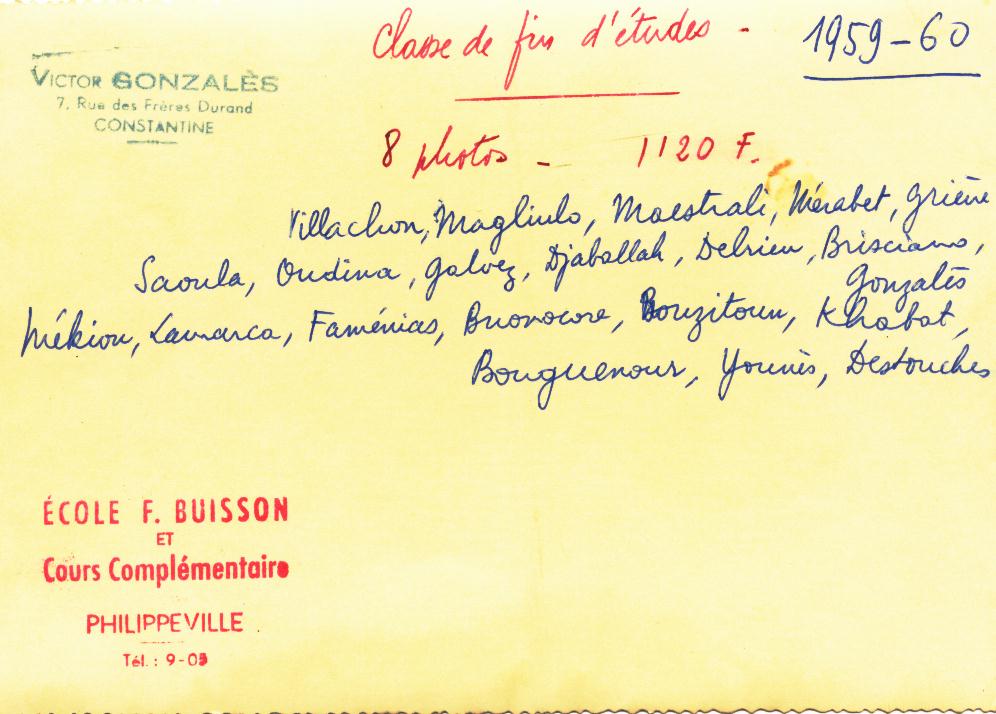 Classe de fin d'études - 1959-60
VICTOR GONZALÈS
7, Rue des Frères Durand
CONSTANTINE
8 photos - 1120 F.
Villachon, Magliulo, Maestrali, Mérabet, Grième
Saoula, Oudina, Galvez, Djaballah, Delrieu, Brisciano,
Gonzalès
Mékiou, Lamarca, Faménias, Buonocore, Bouzitoun, Khabat,
Bouguenour, Younès, Destouches
ÉCOLE F. BUISSON
ET
Cours Complémentaire
PHILIPPEVILLE
Tél. : 9-05